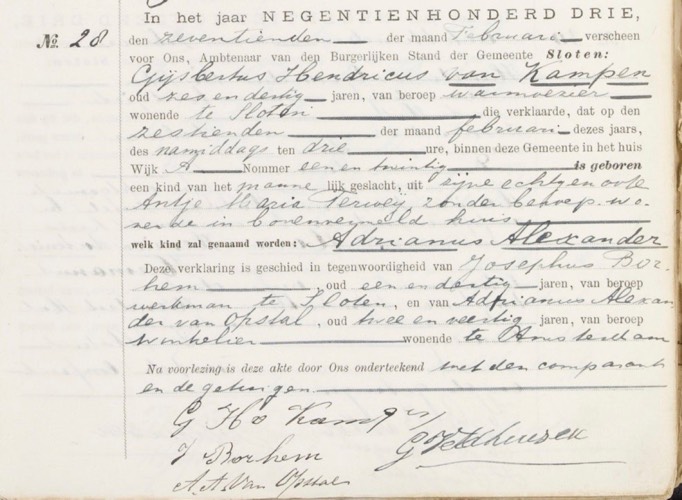 In het jaar NEGENTIENHONDERD DRIE,
No. 28 den zeventienden der maand Februari verscheen
voor Ons, Ambtenaar van den Burgerlijken Stand der Gemeente Sloten:
Gijsbertus Hendricus van Kampen
oud zes en dertig jaren, van beroep warmoezier
wonende te Sloten die verklaarde, dat op den
zestienden der maand februari dezes jaars,
des namiddags ten drie ure, binnen deze Gemeente in het huis
Wijk A Nommer een en twintig is geboren
een kind van het manne lijk geslacht, uit zijne echtgenoote
Antje Maria Verwey, zonder beroep, wo-
nende in bovenvermeld huis
welk kind zal genaamd worden: Adrianus Alexander
Deze verklaring is geschied in tegenwoordigheid van Josephus Bor-
hem, oud een en dertig jaren, van beroep
werkman te Sloten, en van Adrianus Alexan
der van Opstal, oud twee en veertig jaren, van beroep
winkelier wonende te Amsterdam
Na voorlezing is deze akte door Ons onderteekend met den comparant
en de getuigen
G H v Kampen
J Borhem
A. A. Van Opstal